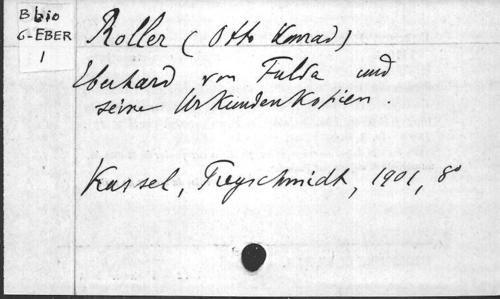 B bio
G-EBER
1
Roller (Otto Konrad)
Eberhard von Fulda und
seine Urkundenkopien.
Kassel, Freyschmidt, 1901, 8°